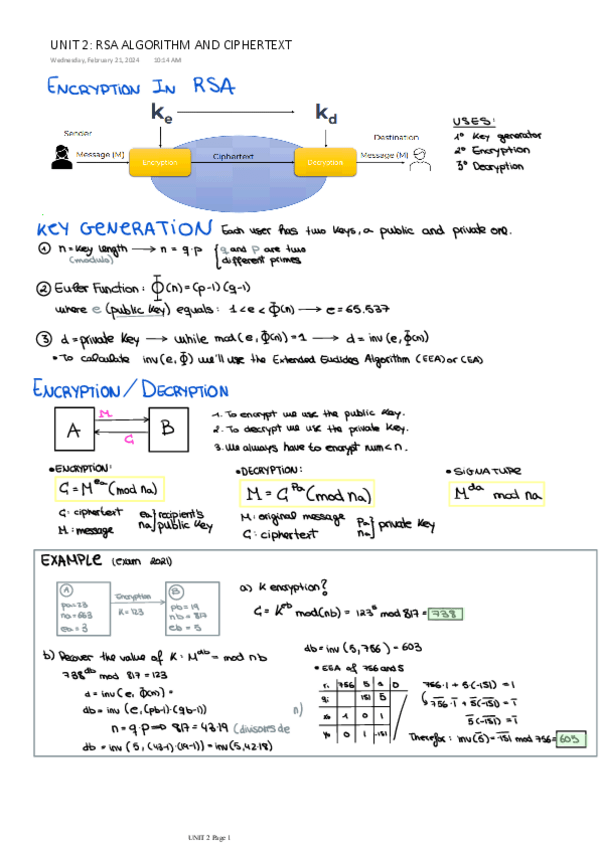 UNIT 2: RSA ALGORITHM AND CIPHERTEXT
Wednesday, February 21, 2024 10:14 AM
ENCRYPTION IN RSA
ke kd
Sender
Destination
Message (M) Encryption Ciphertext Decryption Message (M)
USES:
1º Key generator
2º Encryption
3º Decryption
KEY GENERATION Each user has two keys, a public and private one.
① n = key length → n = q·p { q and p are two
(modulo) different primes
② Euler Function: Φ(n) = (p-1)(q-1)
where e (public key) equals: 1<e<Φ(n) → e = 65.537
③ d = private key → while mod(e, Φ(n)) = 1 → d = inv(e, Φ(n))
• To calculate inv(e, Φ) we'll use the Extended Euclides Algorithm (EEA) or (EA)
ENCRYPTION / DECRYPTION
M
A B
C
1. To encrypt we use the public key.
2. To decrypt we use the private key.
3. We always have to encrypt num < n.
• ENCRYPTION:
C = M^ea (mod na)
C: ciphertext ea} recipient's
M: message na} public key
• DECRYPTION:
M = C^Pa (mod na)
M: original message Pa} private key
C: ciphertext na}
• SIGNATURE
M^da mod na
EXAMPLE (exam 2021)
A
pa=23
na=
ea=3
Encryption
K=123
B
pb=19
nb=817
eb=5
a) K encryption?
C = K^eb mod(nb) = 123^5 mod 817 = 738
b) Recover the value of K: M^db = mod nb
738^db mod 817 = 123
d = inv(e, Φ(n)) =
db = inv(e, (pb-1)·(qb-1))
n = q·p ⇒ 817 = 43·19 (divisors de n)
db = inv(5, (43-1)·(19-1)) = inv(5, 42·18)
db = inv(5, 756) = 603
• EEA of 756 and 5
ri 756 5 1 0
qi 151 5
xi 1 0 1
yi 0 1 -151
756·1 + 5·(-151) = 1
756·1 + 5·(-151) = 1
5·(-151) = 1
Therefor: inv(5) = -151 mod 756 = 605
UNIT 2 Page 1